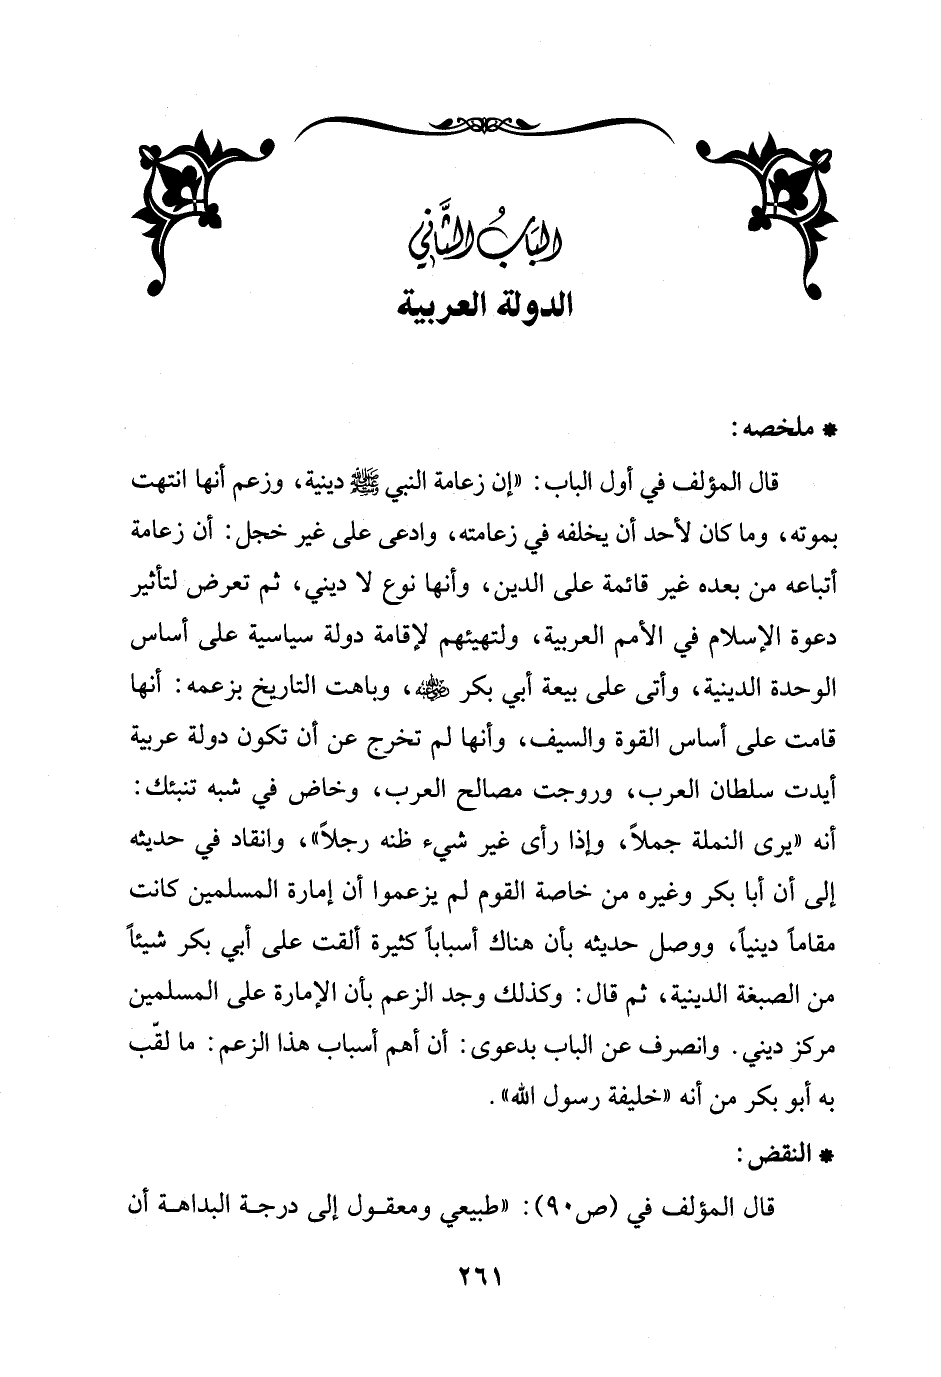 الباب الثاني
الدولة العربية
* ملخصه:
قال المؤلف في أول الباب: «إن زعامة النبي ﷺ دينية، وزعم أنها انتهت
بموته، وما كان لأحد أن يخلفه في زعامته، وادعى على غير خجل: أن زعامة
أتباعه من بعده غير قائمة على الدين، وأنها نوع لا ديني، ثم تعرض لتأثير
دعوة الإسلام في الأمم العربية، ولتهيئهم لإقامة دولة سياسية على أساس
الوحدة الدينية، وأتى على بيعة أبي بكر رضي الله عنه، وباهت التاريخ بزعمه: أنها
قامت على أساس القوة والسيف، وأنها لم تخرج عن أن تكون دولة عربية
أيدت سلطان العرب، وروجت مصالح العرب، وخاض في شبه تنبئك:
أنه «يرى النملة جملاً، وإذا رأى غير شيء ظنه رجلاً»، وانقاد في حديثه
إلى أن أبا بكر وغيره من خاصة القوم لم يزعموا أن إمارة المسلمين كانت
مقاماً دينياً، ووصل حديثه بأن هناك أسباباً كثيرة ألقت على أبي بكر شيئاً
من الصبغة الدينية، ثم قال: وكذلك وجد الزعم بأن الإمارة على المسلمين
مركز ديني. وانصرف عن الباب بدعوى: أن أهم أسباب هذا الزعم: ما لقّب
به أبو بكر من أنه «خليفة رسول الله».
* النقض:
قال المؤلف في (ص٩٠): «طبيعي ومعقول إلى درجة البداهة أن
٢٦١